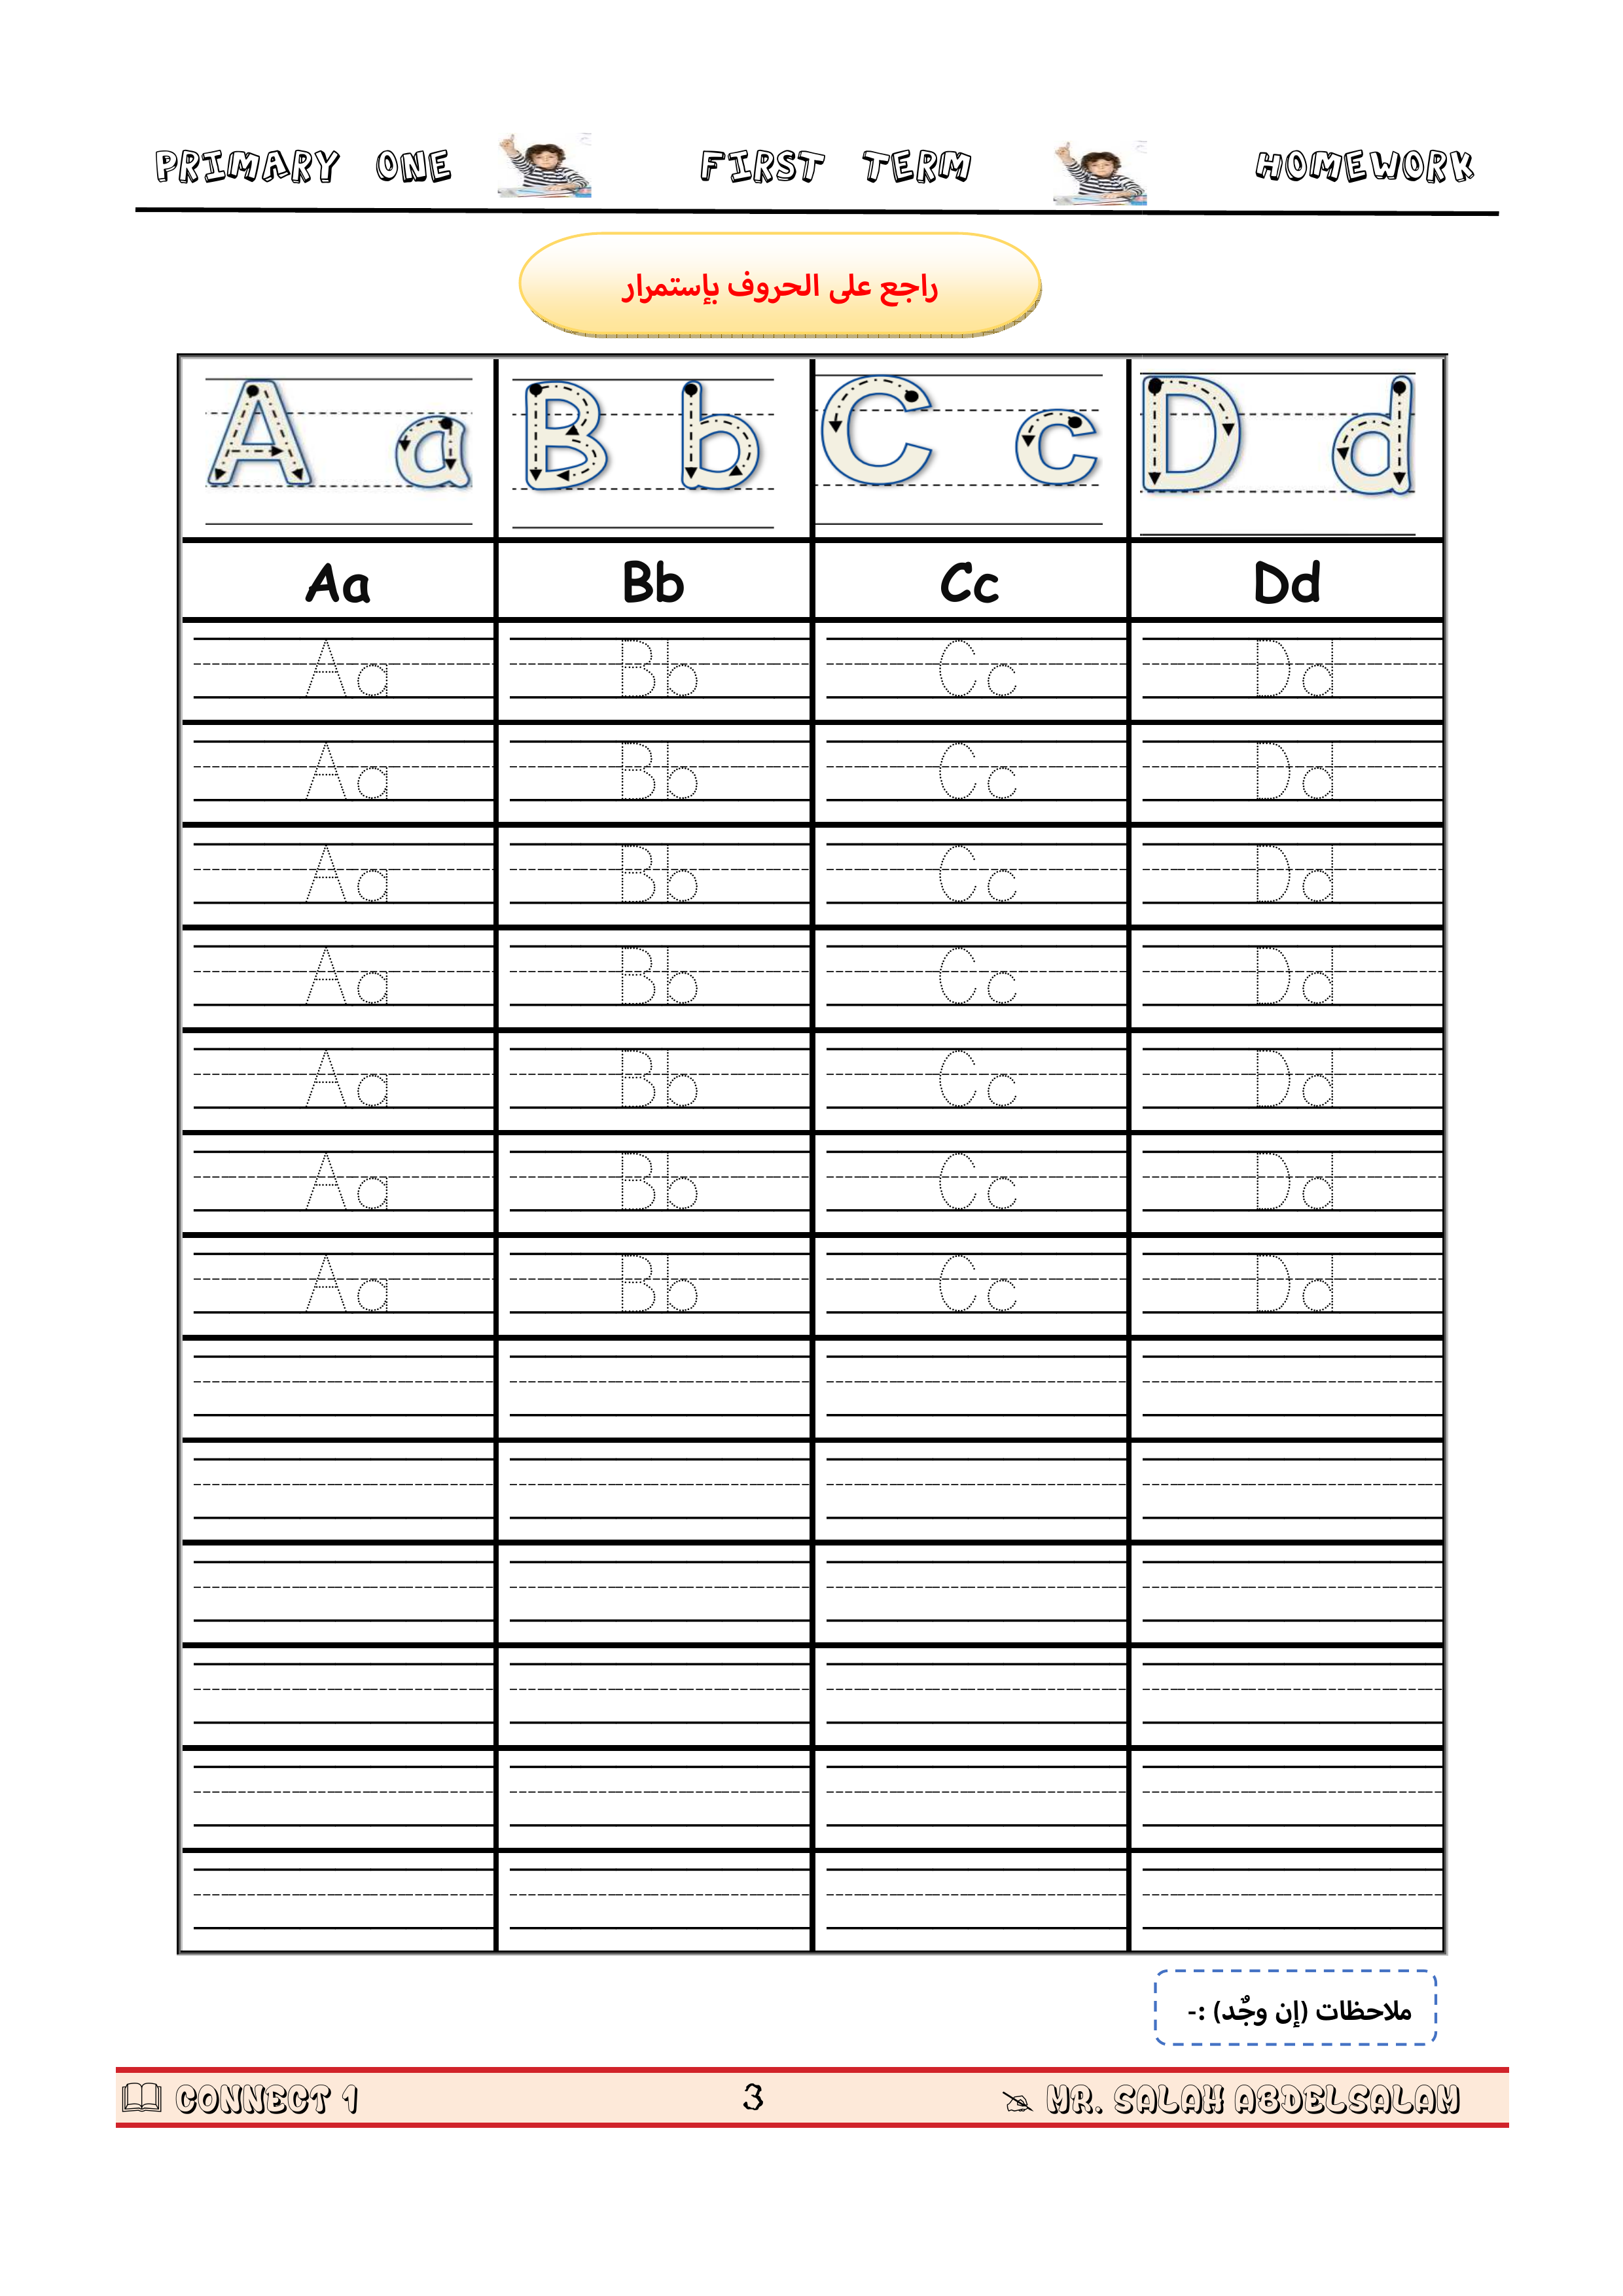 PRIMARY ONE FIRST TERM HOMEWORK
راجع على الحروف بإستمرار
A a B b C c D d
Aa Bb Cc Dd
Aa Bb Cc Dd
Aa Bb Cc Dd
Aa Bb Cc Dd
Aa Bb Cc Dd
Aa Bb Cc Dd
Aa Bb Cc Dd
Aa Bb Cc Dd
ملاحظات (إن وجٌد) :-
CONNECT 1 3 MR. SALAH ABDELSALAM